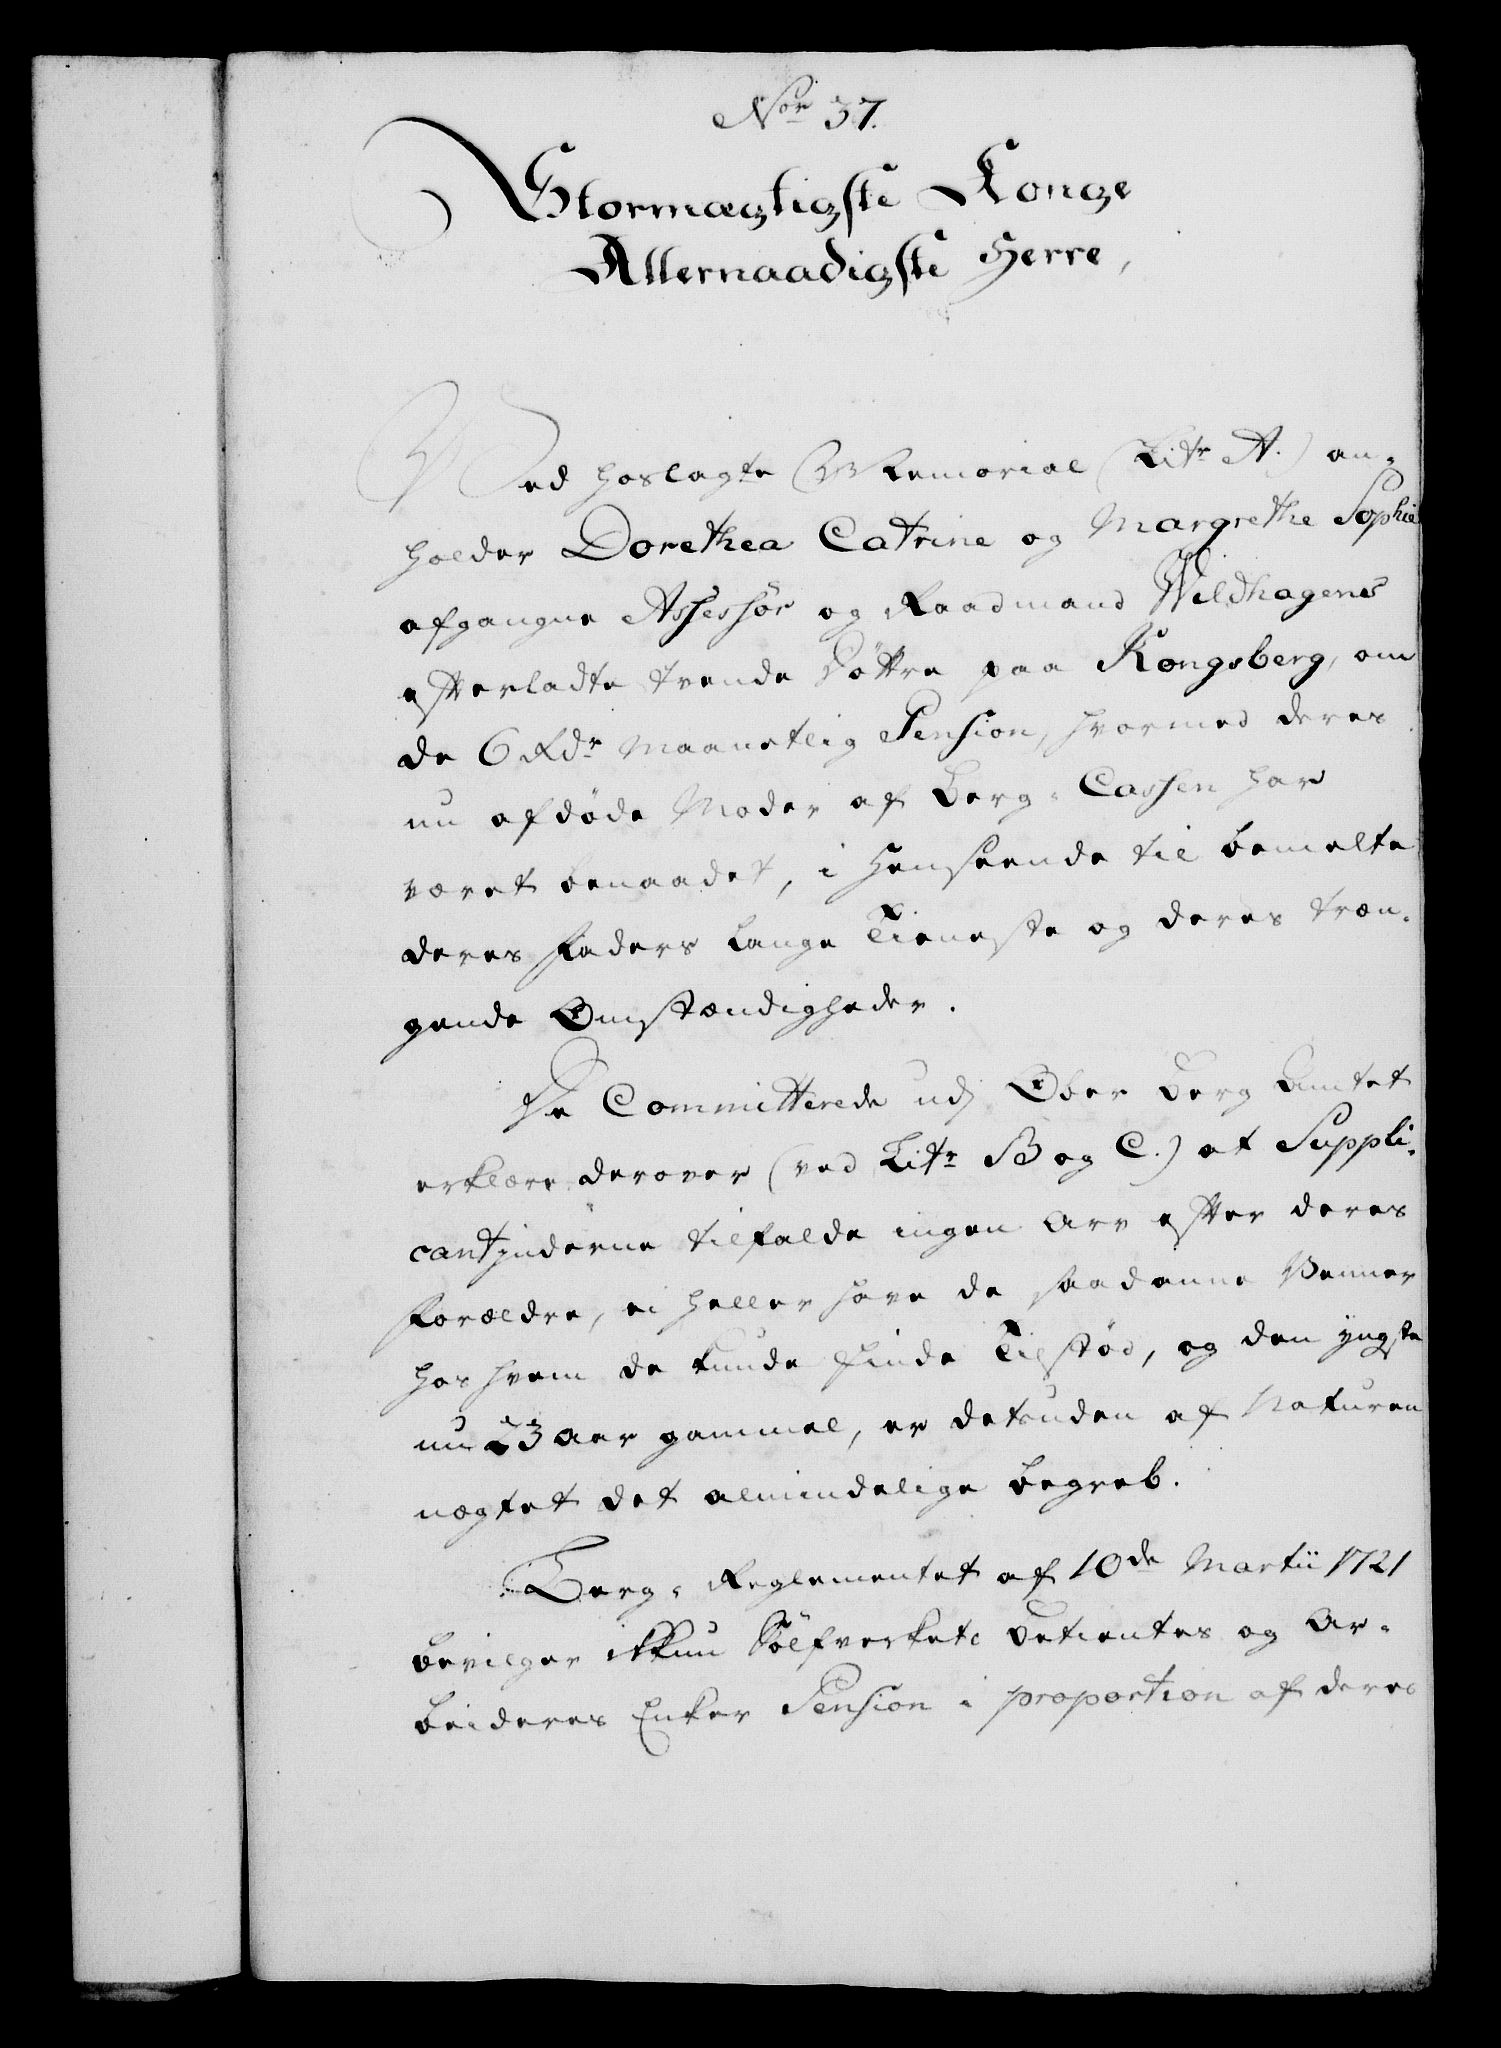 Nor 37.
Stormægtigste Konge
Allernaadigste Herre,
Ved hoslagte Memorial (Litr A.) an-
holder Dorethea Catrine og Margrethe Sophie
afgangne Assessór og Raadmand Wildhagens
efterladte tvende Döttre paa Kongsberg, om
de 6 Rdr maanetlig Pension, hvormed deres
nu afdöde Moder af Berg-Cassen har
været benaadet, i Henseende til bemelte
deres Faders lange Tieneste og deres træn-
gende Omstændigheder.
De Committerede udj Ober Berg Amtet
erklære derover (ved Litr B og C.) at Suppli-
cantinderne tilfaldt ingen Arv efter deres
Forældre, ei heller have de saadanne Venner
hos hvem de kunde finde Tilstöd, og den yngste
nu 23 Aar gammel, er desuden af Naturen
nægtet det almindelige begreb.
Berg-Reglementet af 10de Martii 1721
bevilger ikkun Sölfverkets Betientes og Ar-
beideres Enker Pension i proportion af deres